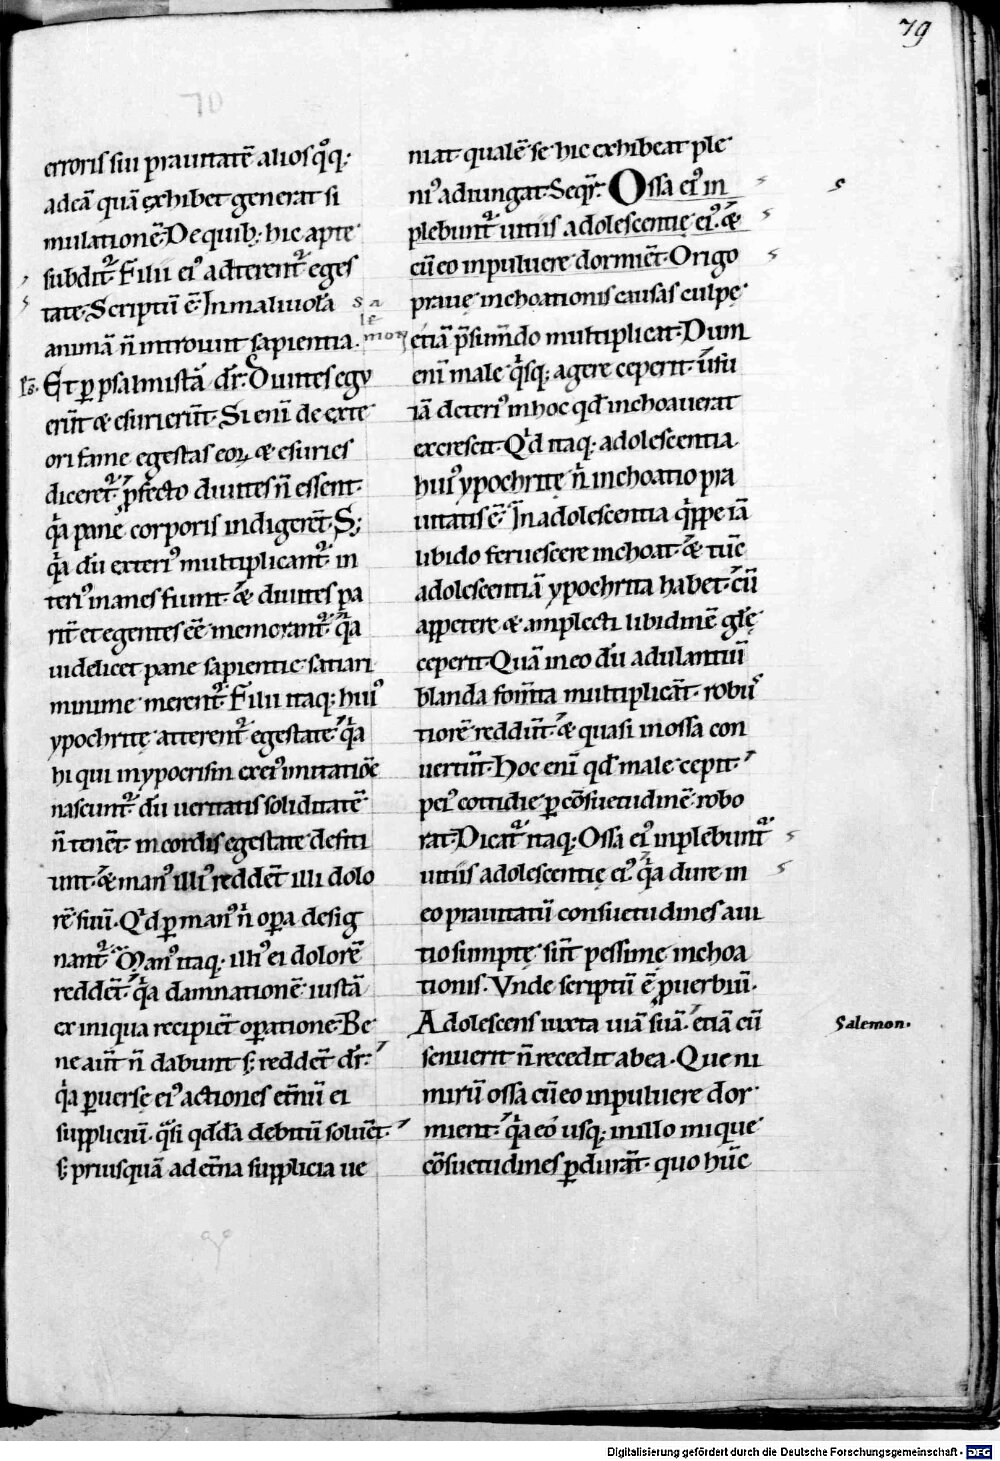 79
70
erroris sui prauitatē alios q̊q;
ad eā quā exhibet generat si
mulationē. De quib; hic apte
subdit̃. Filii ei᾽ adterent̃ eges
tate. Scriptū ē. In maliuola
animā n̄ introiuit sapientia.
salemon
ps. Et ꝑ psalmistā dr̄. Diuites egu
er̄t & esurier̄t. Si eni de exte
ori fame egestas eoꝝ & esuries
diceret̃. ꝓfecto diuites n̄ essent.
q̇a pane corporis indigerēt. S;
q̇a dū exteri᾽ multiplicant̃ in
teri᾽ inanes fiunt. & diuites pa
rit̄ et egentes eē memorant̃. q̇a
uidelicet pane sapientie satiari
minime merent̃. Filii itaq; hui᾽
ypochritę atterent̃ egestate. q̇a
hi qui in ypocrisin ex ei᾽ imitatiōe
nascunt̃. dū ueritatis soliditatē
n̄ tenēt. in cordis egestate defiti
unt. & man᾽ illi᾽ reddēt illi dolo
rē suū. Qd ꝑ man᾽ n̄ oꝑa desig
nant̃. Man᾽ itaq; illi᾽ ei dolorē
reddēt. q̇a damnationē iustā
ex iniqua recipiēt oꝑatione. Be
ne aūt n̄ dabunt s; reddēt dr̄.
q̇a ꝑuerse ei᾽ actiones et̄nū ei
suppliciū. q̇si qd̄dā debitū soluēt.
s; priusquā ad et̄na supplicia ue
niat. qualē se hic exhibeat ple
ni᾽ adiungat. Seqr̄. Ossa ei᾽ in
plebunt̃ uitiis adolescentię ei᾽. &
cū eo in puluere dormiēt. Origo
praue inchoationis causas culpę
etiā p̄sumēdo multiplicat. Dum
eni male q̇sq; agere ceperit. usu
iā deteri᾽ in hoc qd̄ inchoauerat
excrescit. Qd itaq; adolescentia
hui᾽ ypochritę n̄ inchoatio pra
uitatis ē. In adolescentia q̇ppe iā
libido feruescere inchoat. & tūc
adolescentiā ypochrita habet. cū
appetere & amplecti libidinē glę
ceperit. Quā in eo dū adulantiū
blanda fom̄ta multiplicāt. robus
tiorē reddūt. & quasi in ossa con
uertūt. Hoc eni qd̄ male cepit.
pei᾽ cottidie ꝑ cōsuetudinē robo
rat. Dicat̃ itaq; Ossa ei᾽ inplebunt̃
uitiis adolescentię ei᾽. q̇a dure in
eo prauitatū consuetudines a ui
tio sumptę sūt pessimę inchoa
tionis. Vnde scriptū ē ꝓuerbiū.
Adolescens iuxta uiā suā. etiā cū
Salemon.
senuerit n̄ recedit ab ea. Que ni
mirū ossa cū eo in puluere dor
mient. q̇a eo usq; in illo inique
cōsuetudines ꝑdurāt. quo hūc
Digitalisierung gefördert durch die Deutsche Forschungsgemeinschaft - DFG